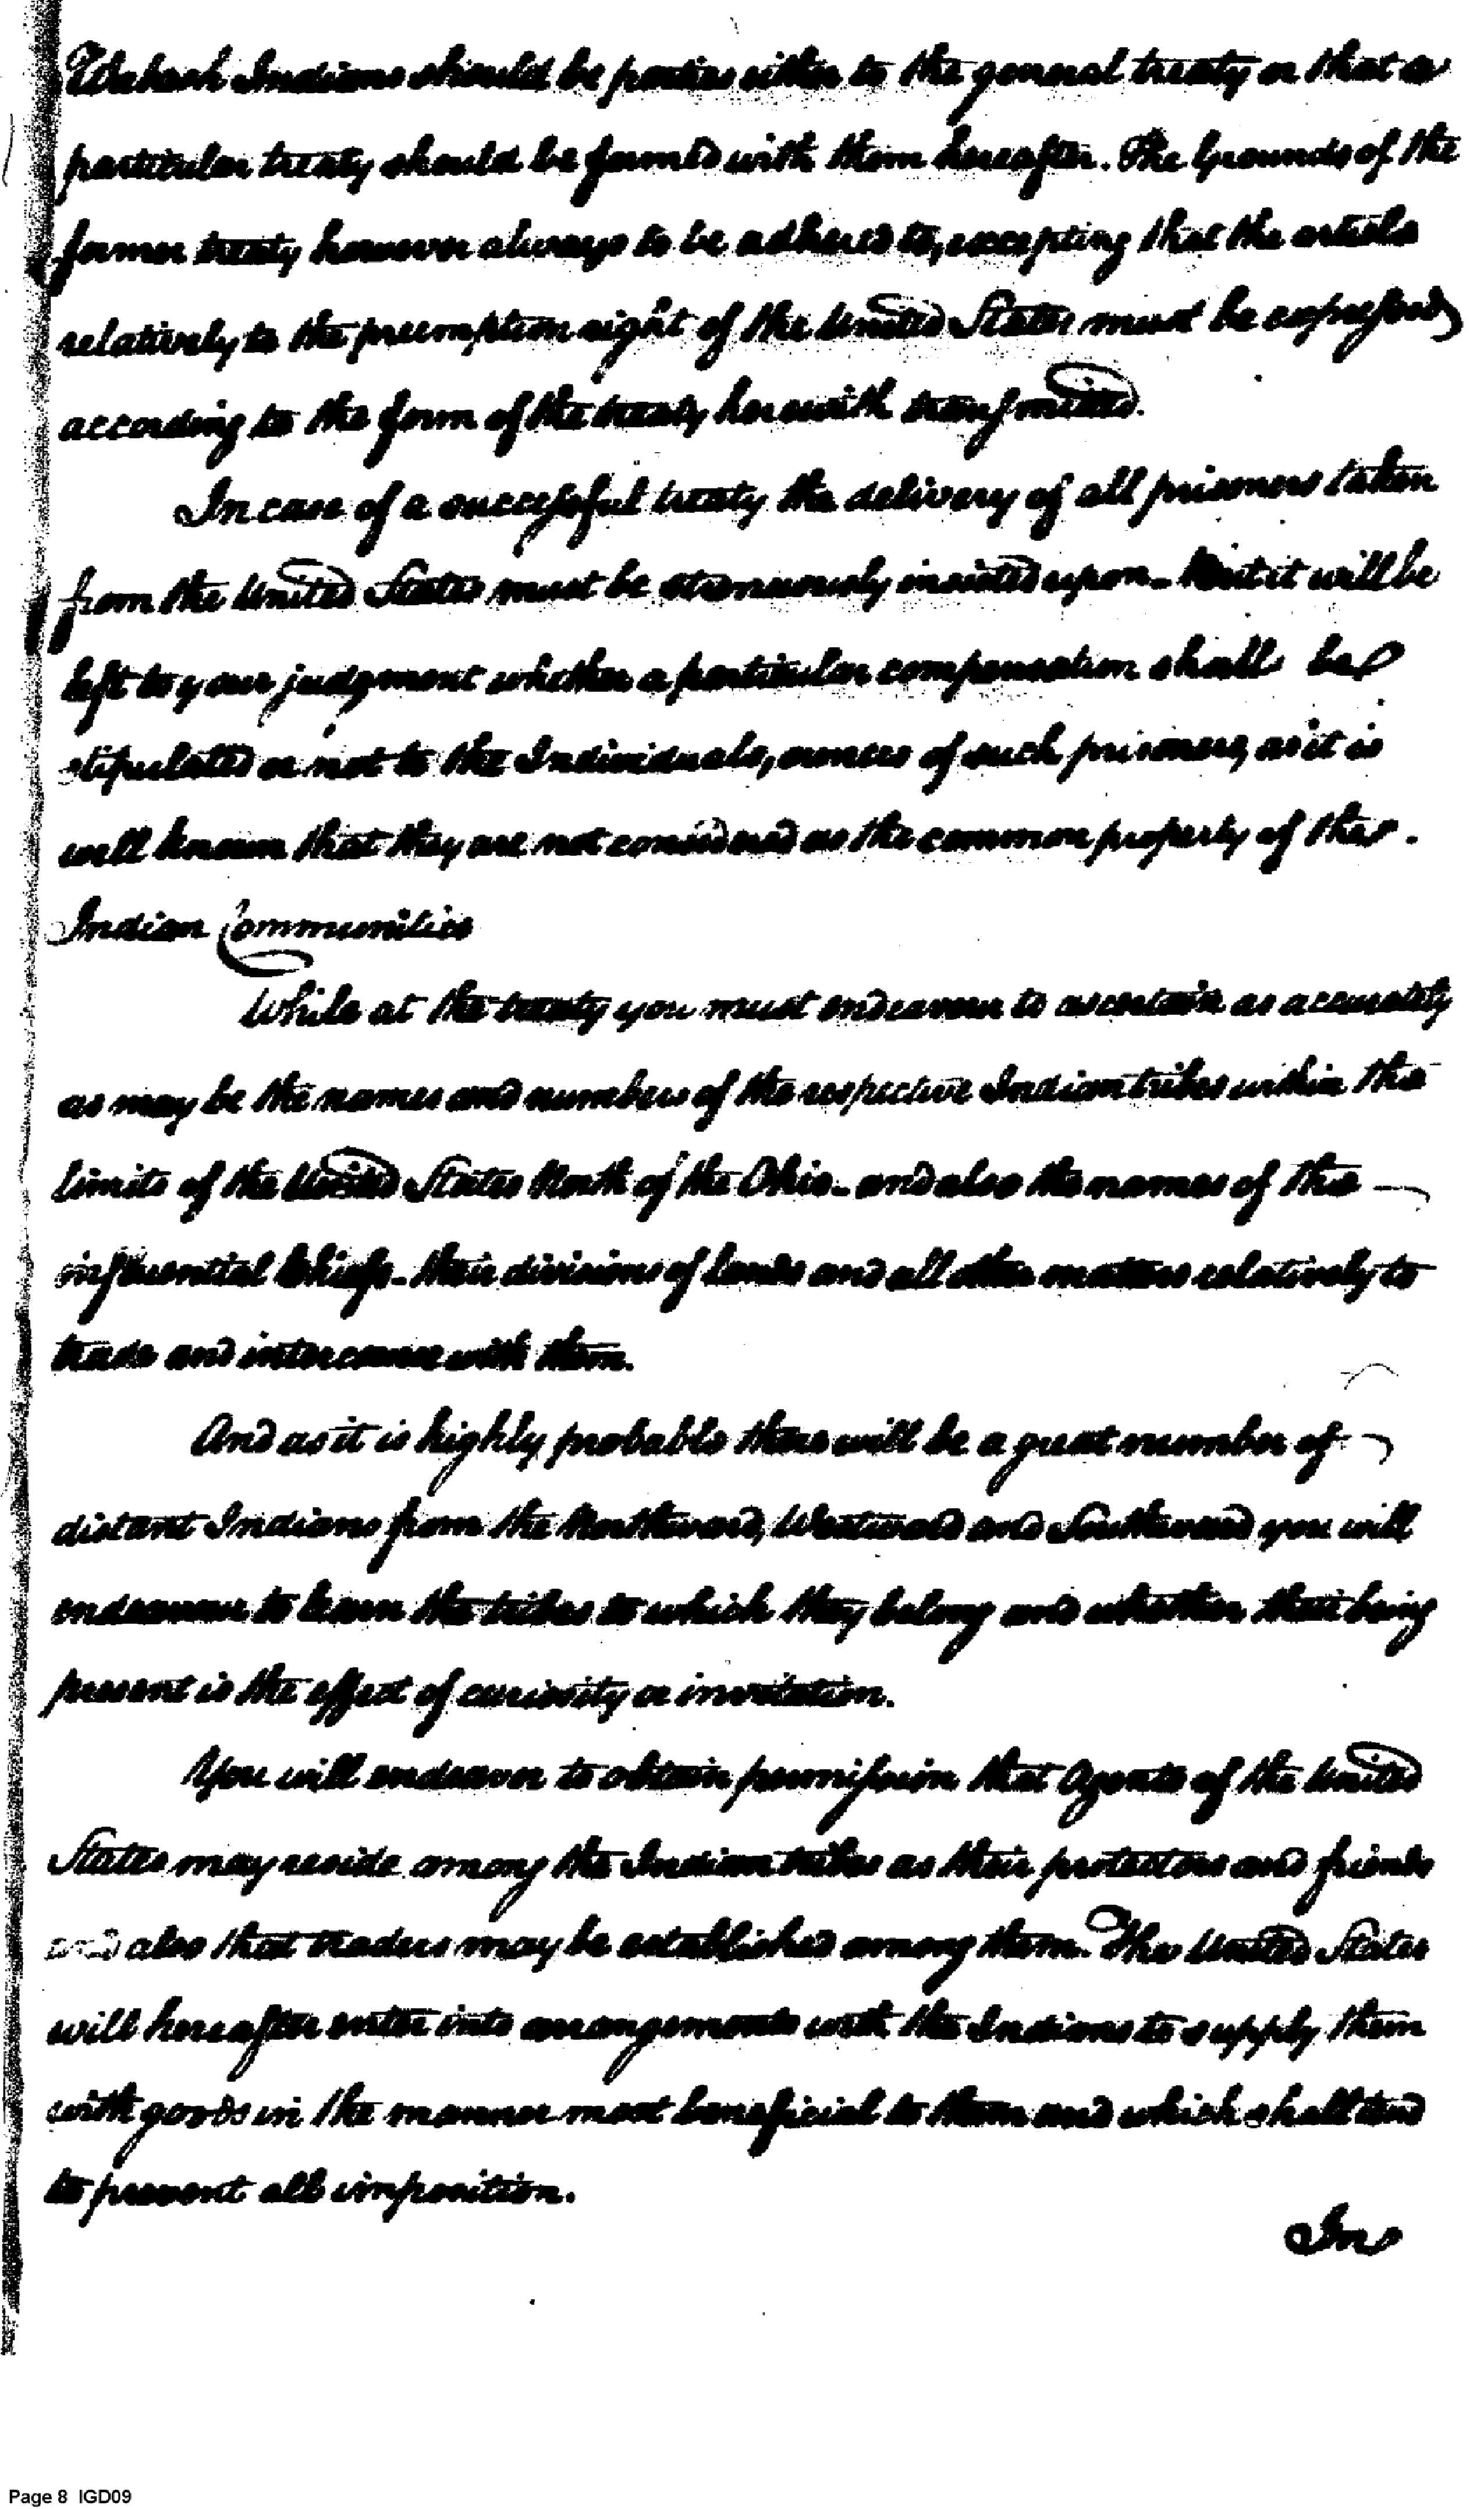 Wabash Indians should be parties either to the general treaty or that a
particular treaty should be formed with them hereafter. The Grounds of the
former treaty however always to be adhered to, excepting that the article
relatively to the preemption right of the United States must be expressed
according to the form of the treaty herewith transmitted.
In case of a successful treaty the delivery of all prisoners taken
from the United States must be strenuously insisted upon. But it will be
left to your judgment whether a particular compensation shall be
stipulated or not to the Individuals, owners of such prisoners, as it is
well known that they are not considered as the common property of the
Indian Communities
While at the treaty you must endeavour to ascertain as accurately
as may be the names and numbers of the respective Indian tribes within the
limits of the United States North of the Ohio - and also the names of the
influential Chiefs - their divisions of lands and all other matters relatively to
trade and intercourse with them.
And as it is highly probable there will be a great number of
distant Indians from the Northward, Westward and Southward you will
endeavour to know the tribes to which they belong and whether their being
present is the effect of curiosity or invitation.
You will endeavor to obtain permission that Agents of the United
States may reside among the Indian tribes as their protectors and friends
and also that traders may be established among them. The United States
will hereafter enter into arrangements with the Indians to supply them
with goods in the manner most beneficial to them and which shall tend
to prevent all imposition.
In
Page 8 IGD09